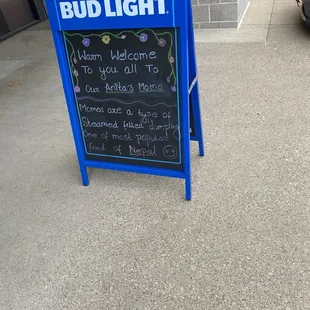 BUD LIGHT
Warm Welcome
To you all To
Our Anita's Momo
Momos are a type of
Steamed filled dumpling
One of most popular
food of Nepal